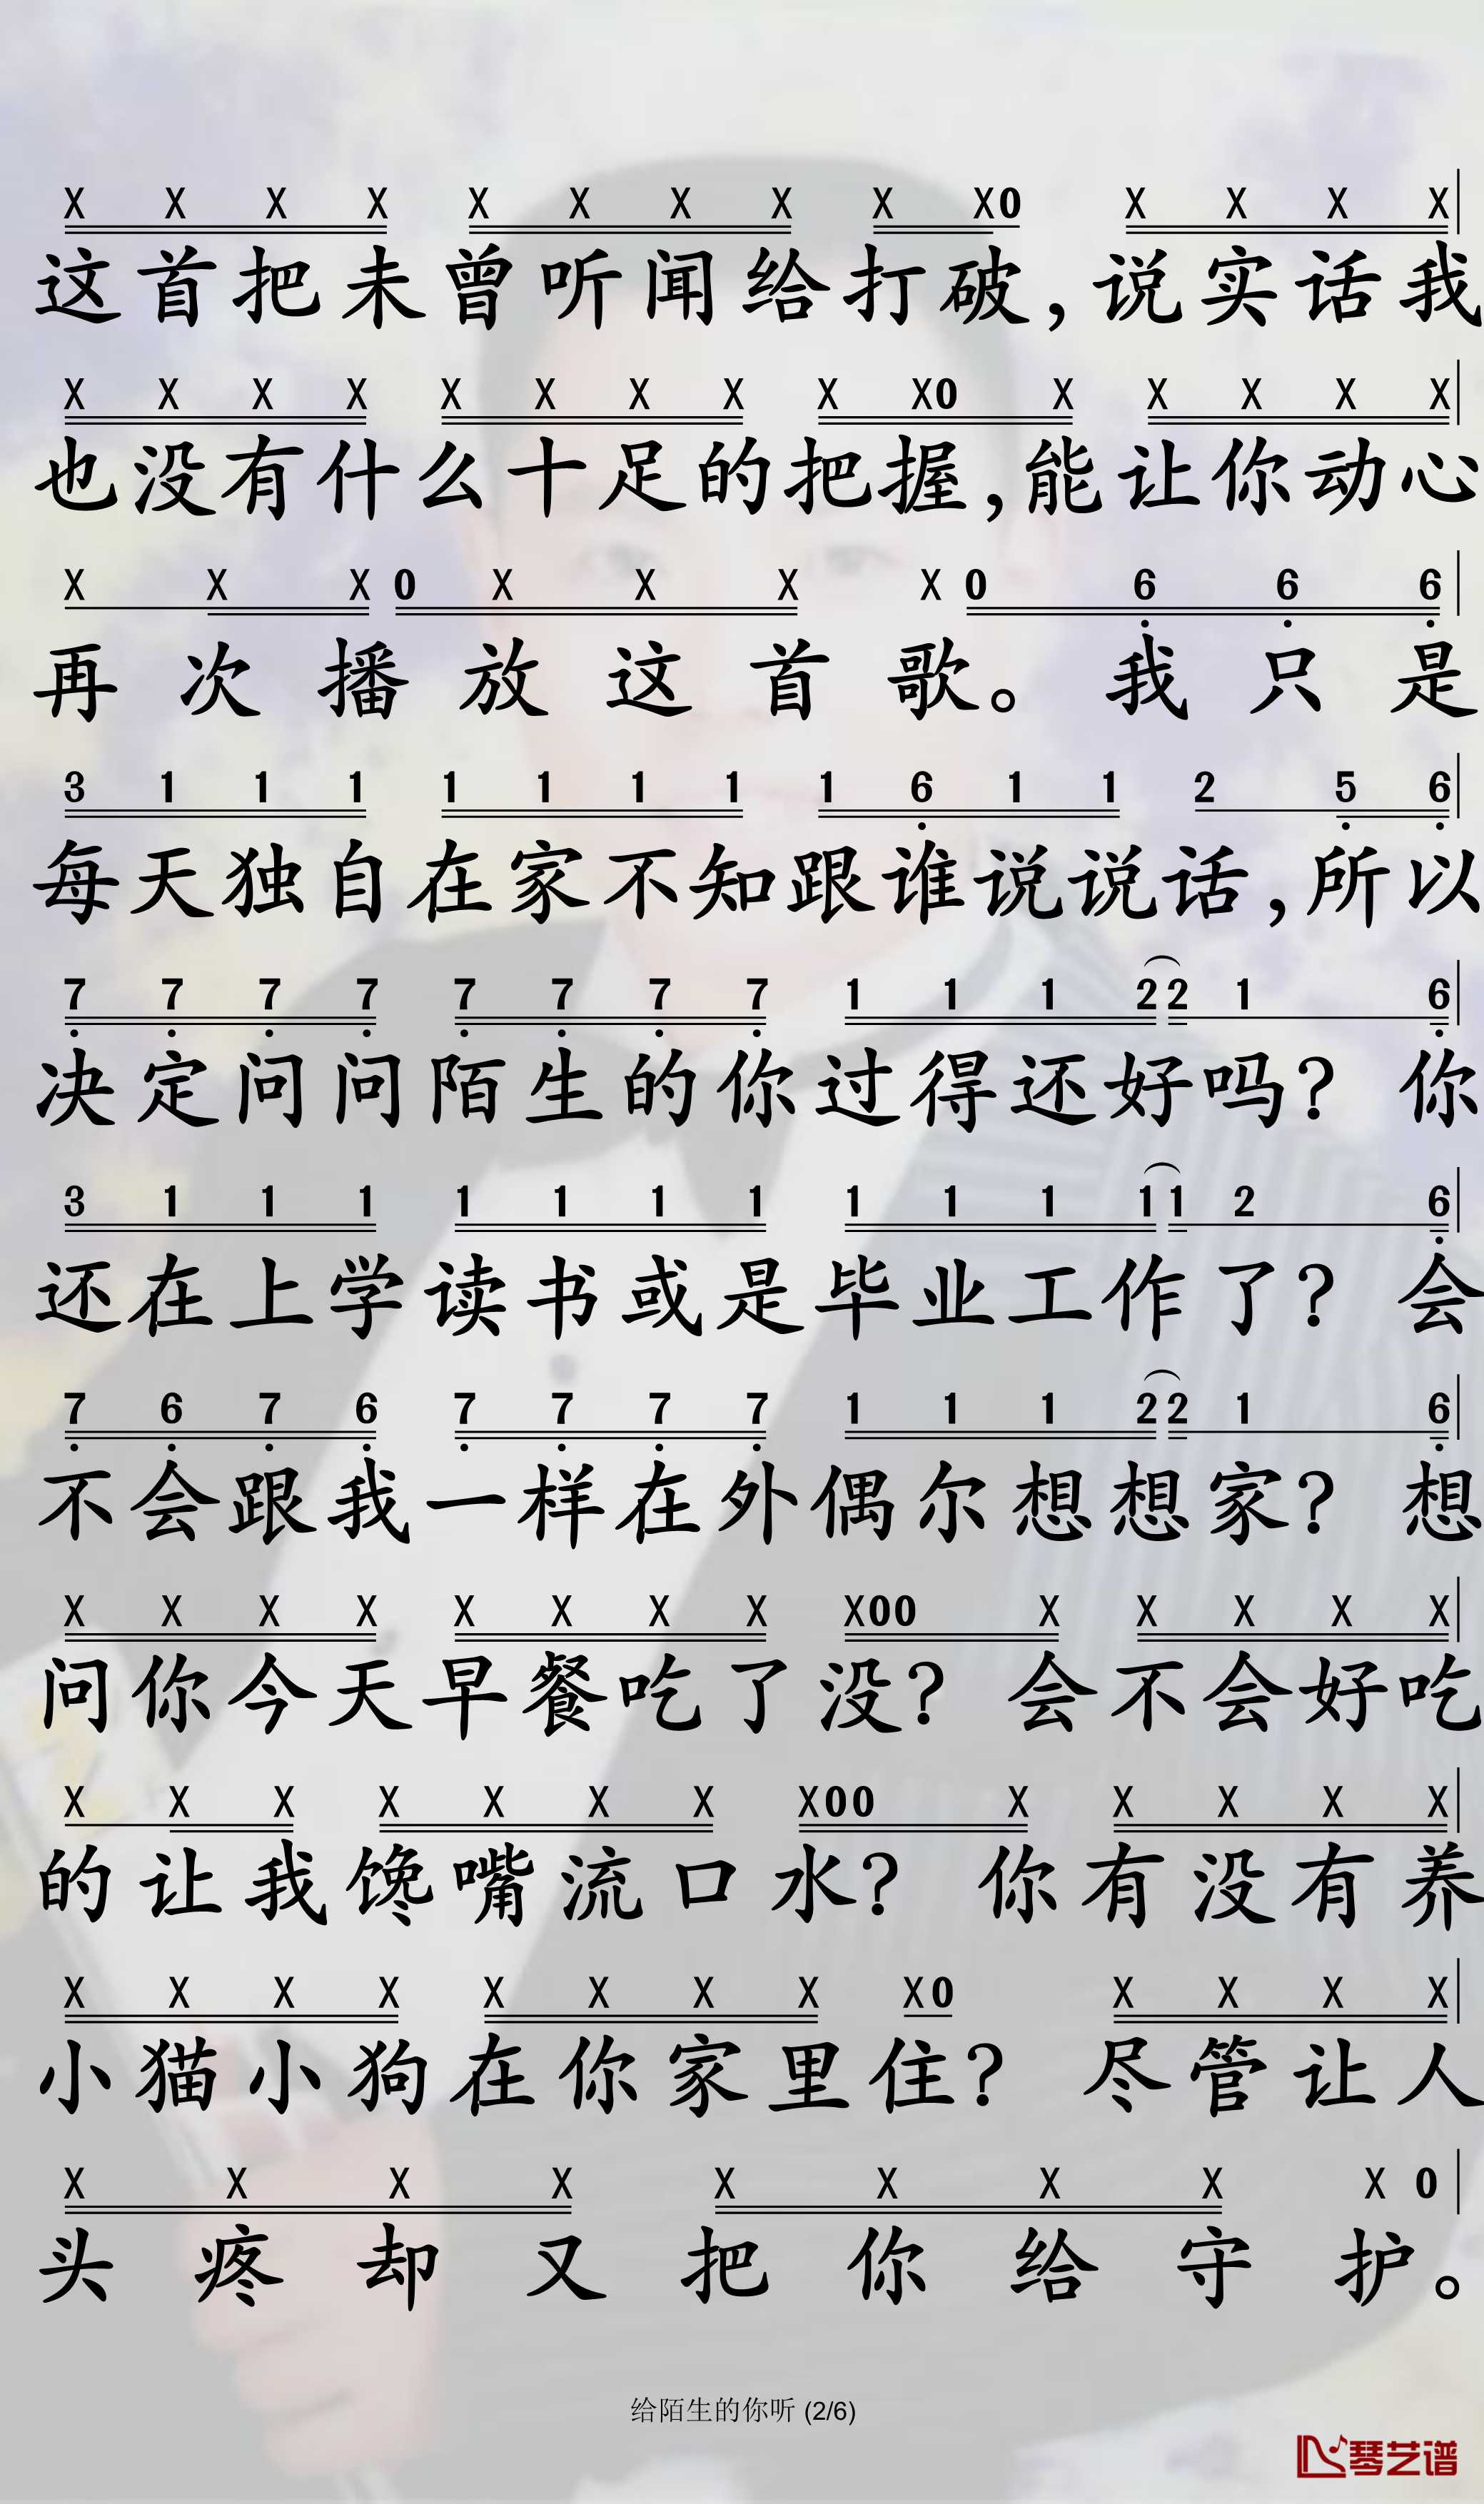 X X X X X X X X X X0 X X X X
这首把未曾听闻给打破,说实话我
X X X X X X X X X X0 X X X X X
也没有什么十足的把握,能让你动心
X X X 0 X X X X 0 6 6 6
再次播放这首歌。我只是
3 1 1 1 1 1 1 1 1 6 1 1 2 5 6
每天独自在家不知跟谁说说话,所以
7 7 7 7 7 7 7 7 1 1 1 2 2 1 6
决定问问陌生的你过得还好吗? 你
3 1 1 1 1 1 1 1 1 1 1 1 1 2 6
还在上学读书或是毕业工作了? 会
7 6 7 6 7 7 7 7 1 1 1 2 2 1 6
不会跟我一样在外偶尔想想家? 想
X X X X X X X X X00 X X X X X
问你今天早餐吃了没? 会不会好吃
X X X X X X X X00 X X X X X
的让我馋嘴流口水? 你有没有养
X X X X X X X X X0 X X X X
小猫小狗在你家里住? 尽管让人
X X X X X X X X X 0
头疼却又把你给守护。
给陌生的你听 (2/6)
琴艺谱